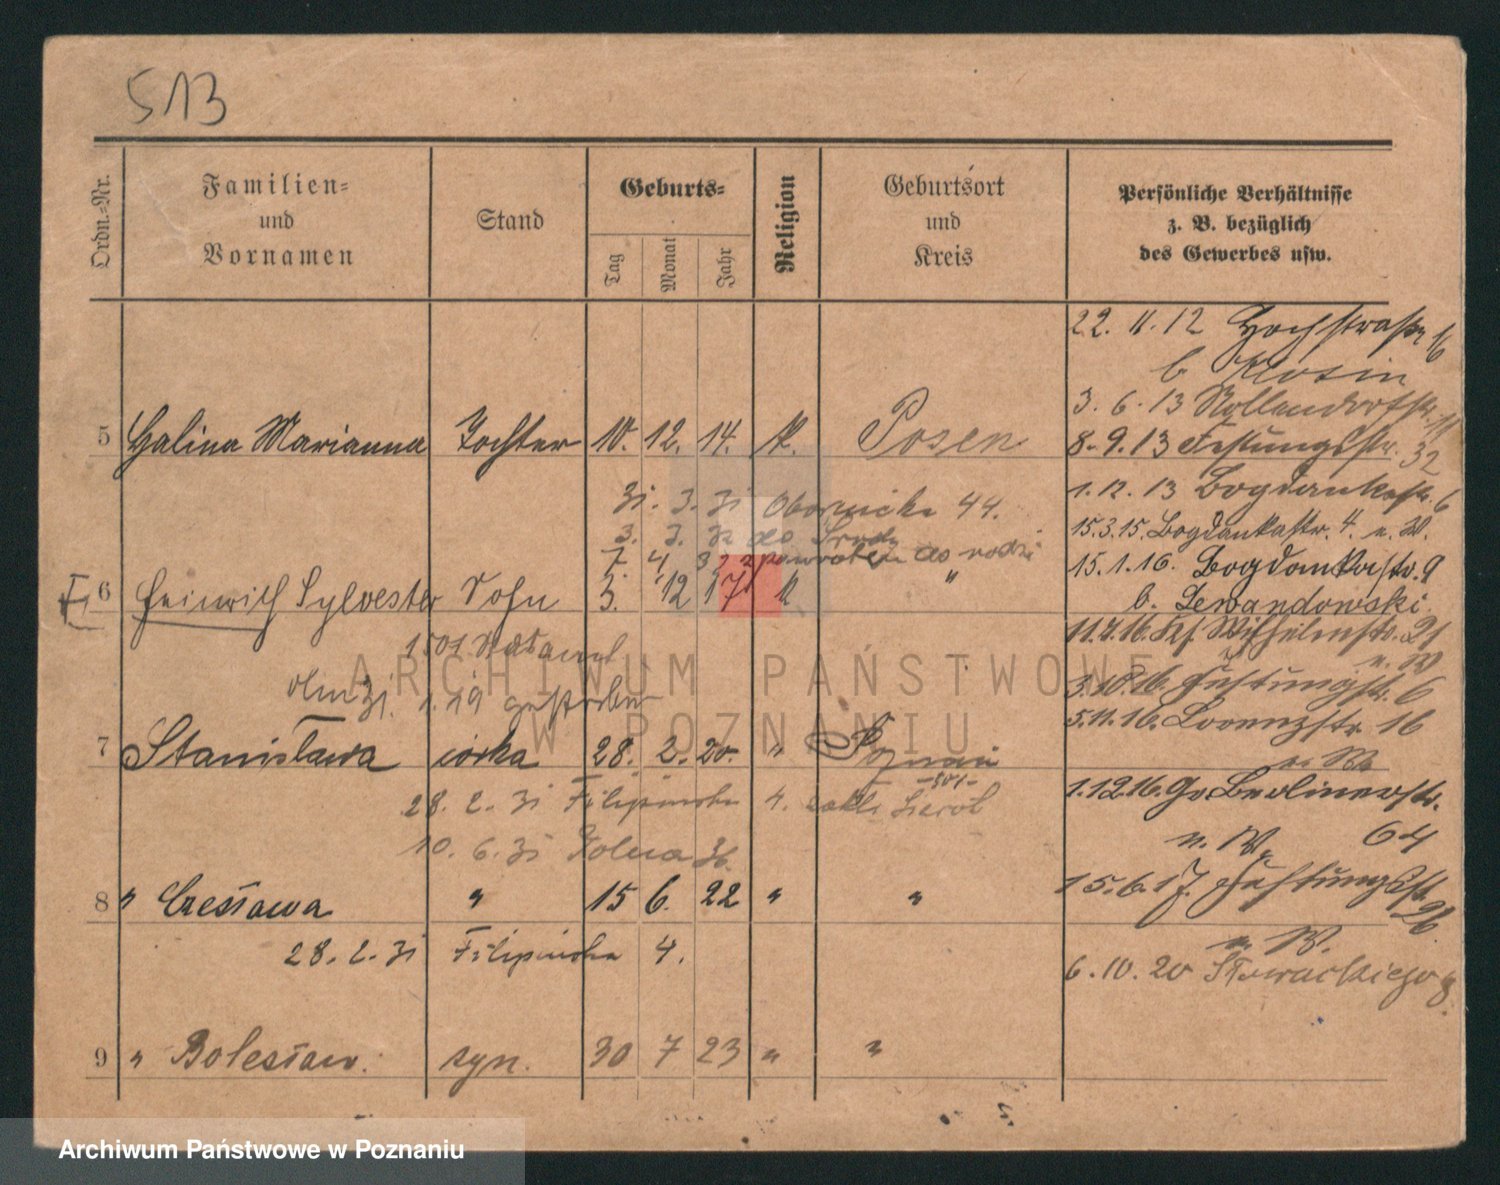 513
Ordn.-Nr.
Familien-
und
Vornamen
Stand
Geburts-
Tag
Monat
Jahr
Religion
Geburtsort
und
Kreis
Persönliche Verhältnisse
z. B. bezüglich
des Gewerbes usw.
22. 11. 12 Hochstraße 16
b
3. 6. 13 Nollendorfstr. 11
5 Halina Marianna Tochter 10. 12. 14. k. Posen
8. 9. 13 Festungsstr. 32
1. 12. 13 Bogdankastr. 6
31. 3. 31 Obornicka 44.
15.3.15. Bogdankastr. 4. n. W.
3. 3. 32 do Środy
7. 4. 32 z powrotem do
15.1.16. Bogdankastr. 9
6 Heinrich Sylvester Sohn 3. 12 17 k "
b. Lewandowski
11.4.16. Kf. Wilhelmstr. 21
n. W
1.19 gestorben
3.10.16. Festungstr. 6
5.11.16. Lorenzstr. 16
7 Stanisława córka 28. 2. 20. " Poznań
n. W
28. 2. 31 Filipińska 4. zakł. sierot
1.12.16. Gr. Berlinerstr.
64
n. W.
10. 6. 31 Polna 36
8 " Czesława " 15 6. 22 " "
15.6.17. Festungsstr. 26
n. W.
28. 2. 31 Filipińska 4.
6. 10. 20 Słowackiego 8.
9 " Bolesław. syn. 30 7 23 " "
ARCHIWUM PAŃSTWOWE
W POZNANIU
Archiwum Państwowe w Poznaniu